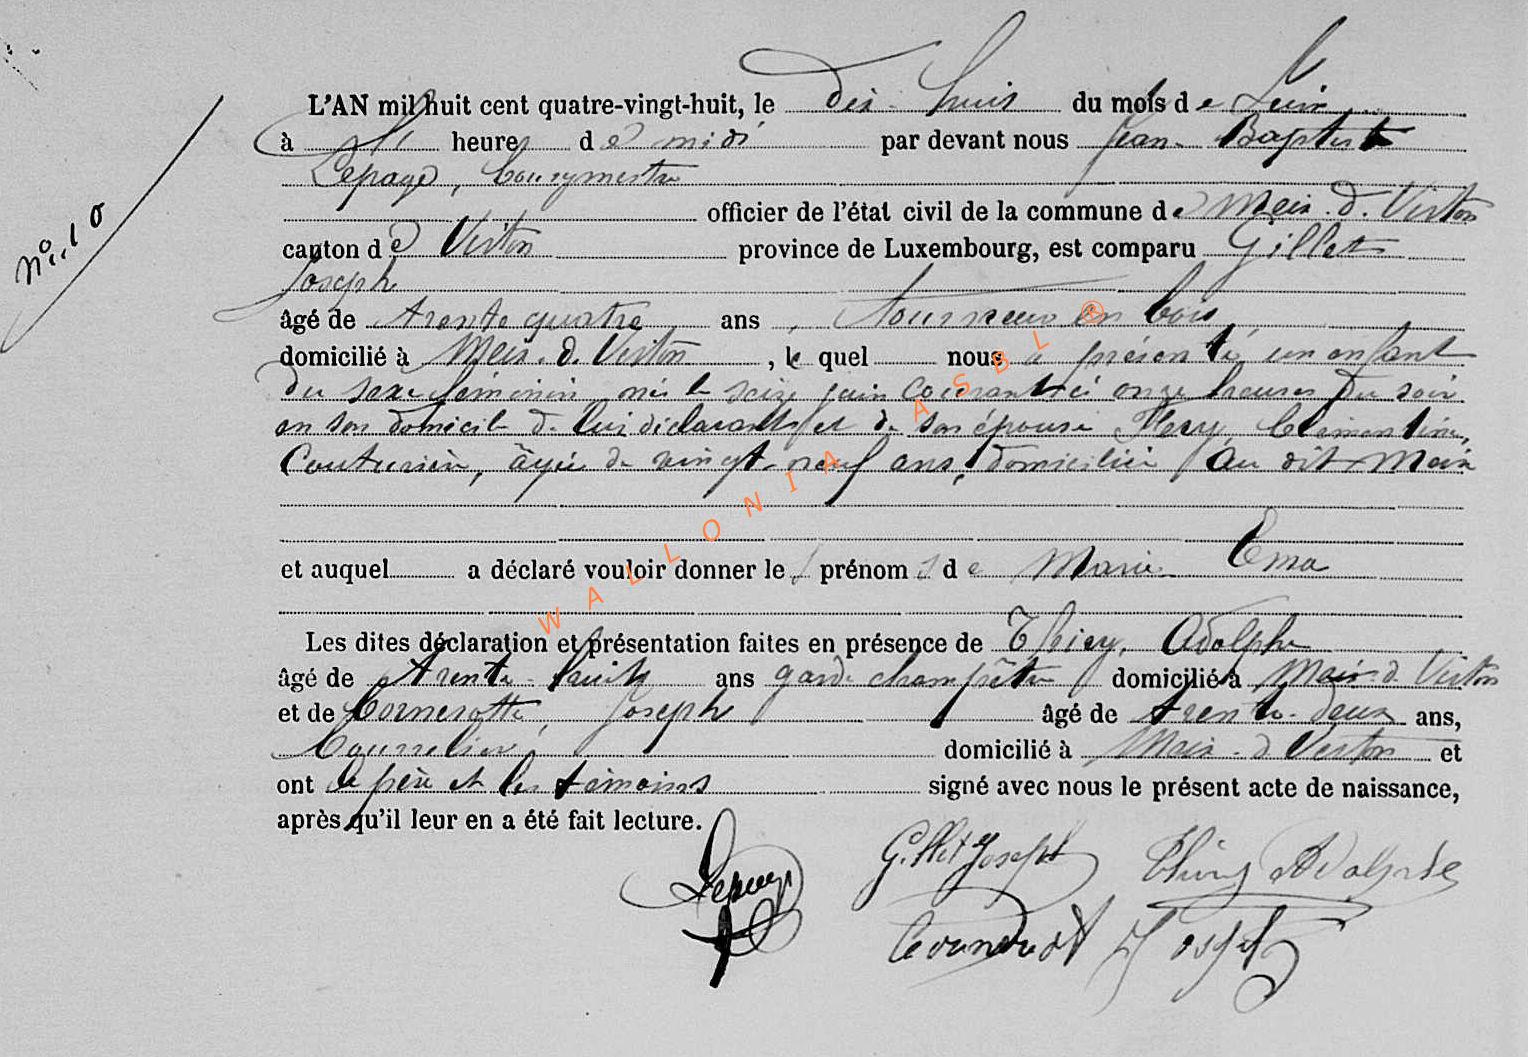 N° 10
L'AN mil huit cent quatre-vingt-huit, le dix-huit du mois de Juin
à heure de midi par devant nous Jean-Baptiste
Lepage, bourgmestre
officier de l'état civil de la commune de Meix-d-Virton
canton de Virton province de Luxembourg, est comparu Gillet
Joseph
âgé de trente quatre ans, tourneur en bois
domicilié à Meix-d-Virton, le quel nous a présenté un enfant
du sexe féminin né le seize juin courant à onze heures du soir
en son domicile de lui déclarant et de son épouse Clémentine,
Couturière, âgée de vingt-neuf ans, domiciliée au dit Meix
et auquel a déclaré vouloir donner les prénoms de Marie Ema
Les dites déclaration et présentation faites en présence de Thiry, Adolphe
âgé de trente-huit ans garde champêtre domicilié à Meix-d-Virton
et de Cornerotte, Joseph âgé de trente-deux ans,
domicilié à Meix-d-Virton et
ont le père et les témoins signé avec nous le présent acte de naissance,
après qu'il leur en a été fait lecture.
Lepage
Gillet Joseph Thiry Adolphe
WALLONIA ASBL ®